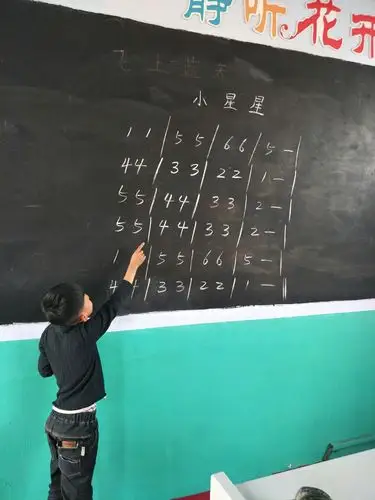 静听花开
小星星
1 1 | 5 5 | 6 6 | 5 — |
4 4 | 3 3 | 2 2 | 1 — |
5 5 | 4 4 | 3 3 | 2 — |
5 5 | 4 4 | 3 3 | 2 — |
1 | 5 5 | 6 6 | 5 — |
4 4 | 3 3 | 2 2 | 1 — ‖